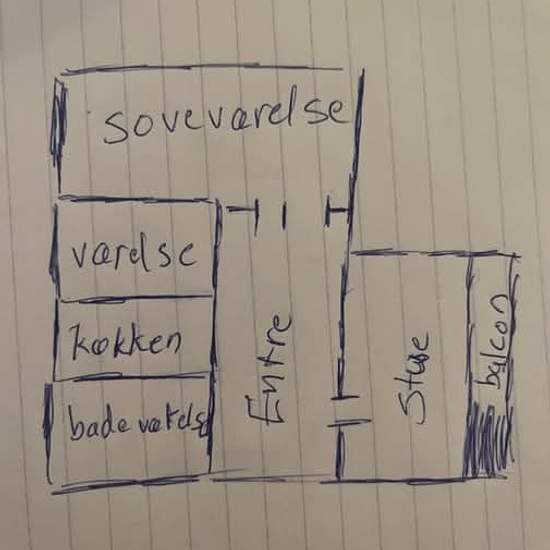 sovevarelse
varelse
køkken
badevarelse
Entre
Stue
balcon